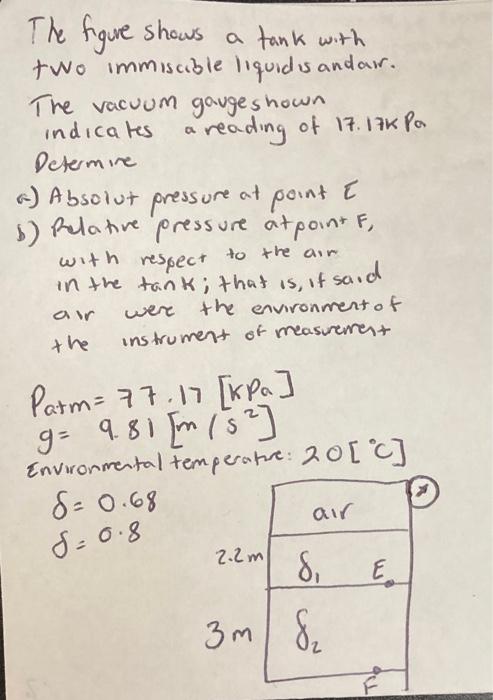 The figure shows a tank with
two immiscible liquids and air.
The vacuum gauge shown
indicates a reading of 17.17KPa
Determine
a) Absolut pressure at point E
b) Relative pressure at point F,
with respect to the air
in the tank; that is, if said
air were the environment of
the instrument of measurement
Patm= 77.17 [KPa]
g= 9.81 [m/s²]
Environmental temperature: 20[°C]
δ= 0.68
δ= 0.8
air
2.2m δ₁ E
3m δ₂
F